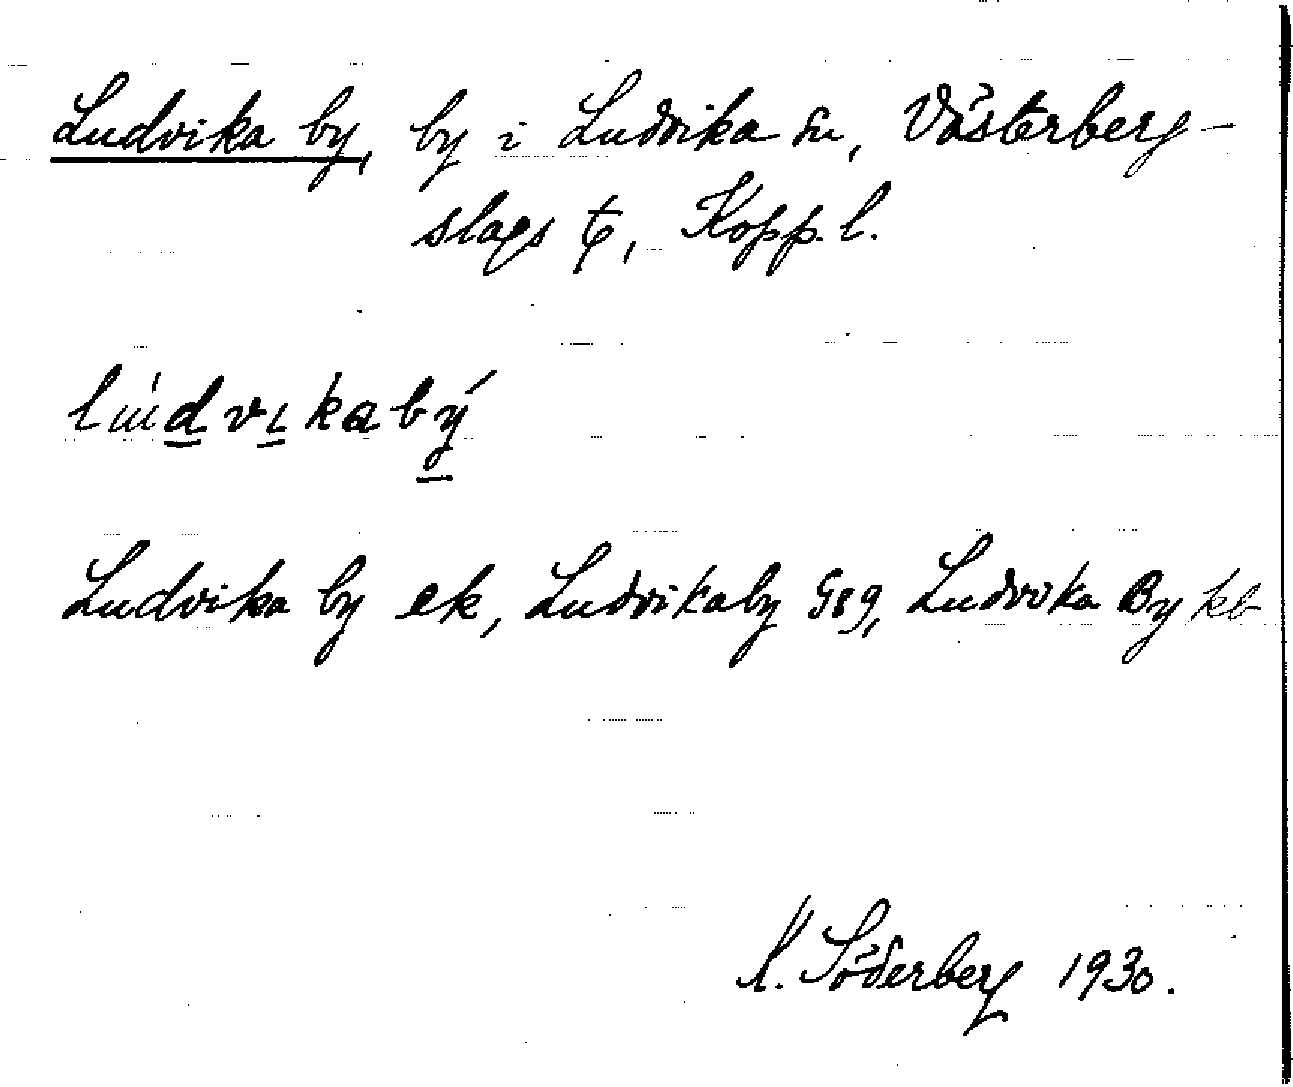 Ludvika by, by i Ludvika sn, Västerberg-
slags tg, Kopp. l.
lúdvɩkabý
Ludvika by ek, Ludvikaby Gsg, Ludvika By kb
Söderberg 1930.